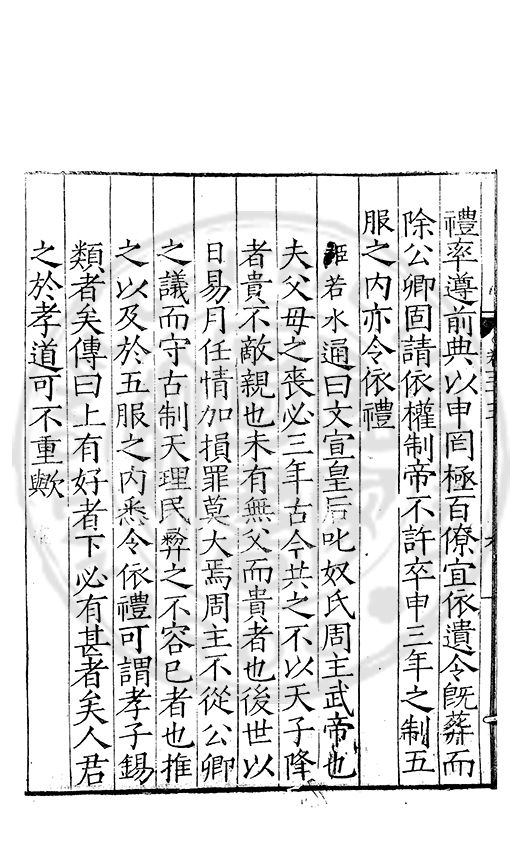 禮率遵前典以申罔極百僚宜依遺令旣葬而
除公卿固請依權制帝不許卒申三年之制五
服之內亦令依禮
若水通曰文宣皇后叱奴氏周主武帝也
夫父毋之喪必三年古今共之不以天子隆
者貴不敵親也未有無父而貴者也後世以
日易月任情加損罪莫大焉周主不從公卿
之議而守古制天理民彞之不容已者也推
之以及於五服之內悉令依禮可謂孝子錫
類者矣傳曰上有好者下必有甚者矣人君
之於孝道可不重歟